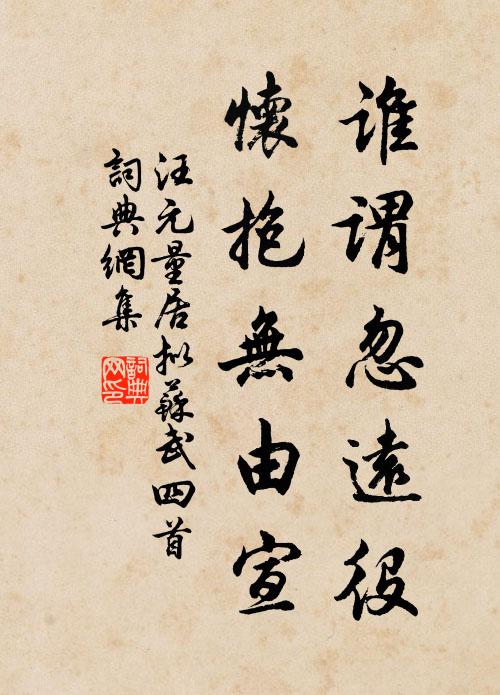 誰謂忽遠役
懷抱無由宣
汪元量居拟蘇武四首
詞典網集
詞典网印